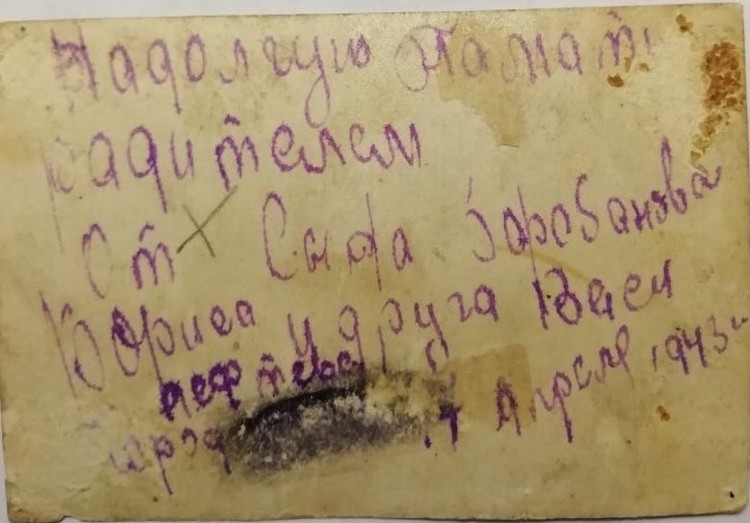 Надолгую Памать
радителем
От Сына Зарабанова
Бориса и друга Васи
город 4 Апреля 1943 г